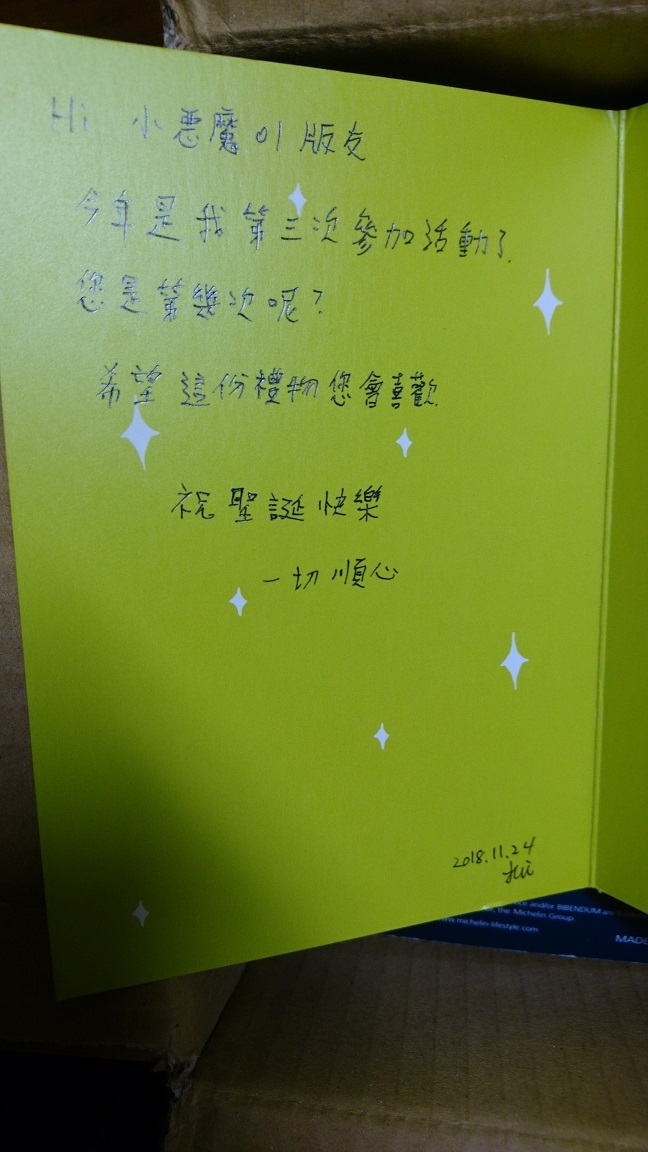 Hi 小悪魔01版友
今年是我第三次參加活動了.
您是第幾次呢?
希望這份禮物您會喜歡.
祝聖誕快樂
一切順心
2018.11.24
and/or BIBENDUM are
the Michelin Group.
www.michelin-lifestyle.com
MADE